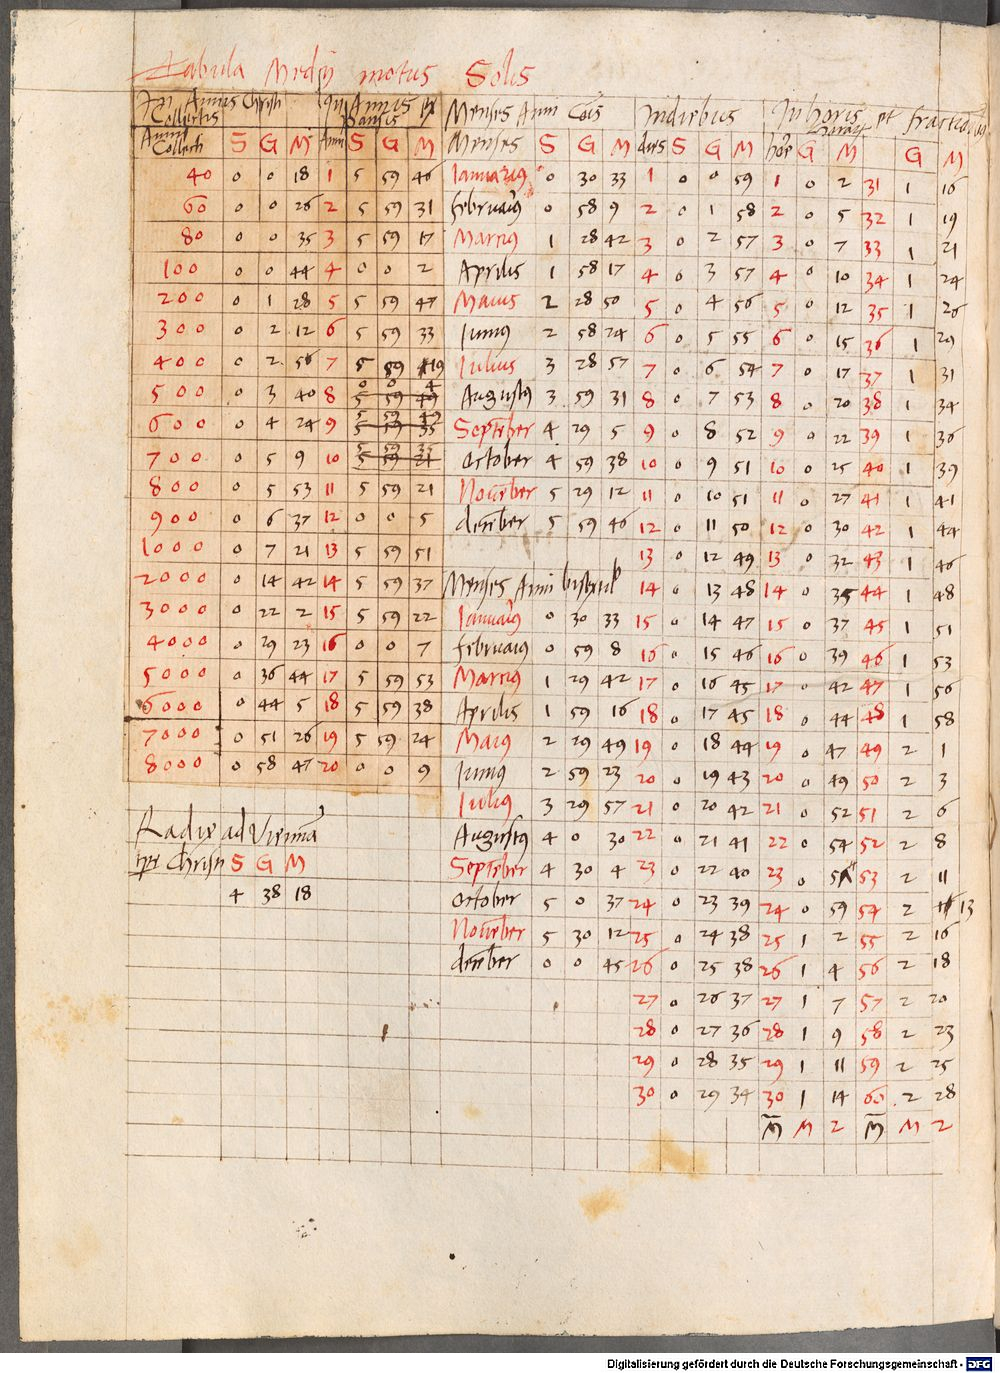 Tabula Medij motus Solis
In Annis Christi Collectis | In Annis Christi Pansis | Menses Anni Cois | In diebus | In horis et fractionibus
Anni Collecti S G M | Anni S G M | Menses S G M | dies S G M | hore G M | G M
40 0 0 18 | 1 5 59 46 | Ianuarius 0 30 33 | 1 0 0 59 | 1 0 2 | 31 1 16
60 0 0 26 | 2 5 59 31 | februarius 0 58 9 | 2 0 1 58 | 2 0 5 | 32 1 19
80 0 0 35 | 3 5 59 17 | Marcius 1 28 42 | 3 0 2 57 | 3 0 7 | 33 1 21
100 0 0 44 | 4 0 0 2 | Aprilis 1 58 17 | 4 0 3 57 | 4 0 10 | 34 1 24
200 0 1 28 | 5 5 59 47 | Maius 2 28 50 | 5 0 4 56 | 5 0 12 | 35 1 26
300 0 2 12 | 6 5 59 33 | Iunius 2 58 24 | 6 0 5 55 | 6 0 15 | 36 1 29
400 0 2 56 | 7 5 59 19 | Iulius 3 28 57 | 7 0 6 54 | 7 0 17 | 37 1 31
500 0 3 40 | 8 0 0 4 | Augustus 3 59 31 | 8 0 7 53 | 8 0 20 | 38 1 34
600 0 4 24 | 9 5 59 49 | September 4 29 5 | 9 0 8 52 | 9 0 22 | 39 1 36
700 0 5 9 | 10 5 59 35 | October 4 59 38 | 10 0 9 51 | 10 0 25 | 40 1 39
800 0 5 53 | 11 5 59 21 | November 5 29 12 | 11 0 10 51 | 11 0 27 | 41 1 41
900 0 6 37 | 12 0 0 5 | december 5 59 46 | 12 0 11 50 | 12 0 30 | 42 1 44
1000 0 7 21 | 13 5 59 51 | 13 0 12 49 | 13 0 32 | 43 1 46
2000 0 14 42 | 14 5 59 37 | Menses Anni bisextil | 14 0 13 48 | 14 0 35 | 44 1 48
3000 0 22 2 | 15 5 59 22 | Ianuarius 0 30 33 | 15 0 14 47 | 15 0 37 | 45 1 51
4000 0 29 23 | 16 0 0 7 | februarius 0 59 8 | 16 0 15 46 | 16 0 39 | 46 1 53
5000 0 36 44 | 17 5 59 53 | Marcius 1 29 42 | 17 0 16 45 | 17 0 42 | 47 1 56
6000 0 44 5 | 18 5 59 38 | Aprilis 1 59 16 | 18 0 17 45 | 18 0 44 | 48 1 58
7000 0 51 26 | 19 5 59 24 | Maius 2 29 49 | 19 0 18 44 | 19 0 47 | 49 2 1
8000 0 58 47 | 20 0 0 9 | Iunius 2 59 23 | 20 0 19 43 | 20 0 49 | 50 2 3
Iulius 3 29 57 | 21 0 20 42 | 21 0 52 | 51 2 6
Radix ad Viennā | Augustus 4 0 30 | 22 0 21 41 | 22 0 54 | 52 2 8
tpe Christi S G M | September 4 30 4 | 23 0 22 40 | 23 0 | 53 2 11
4 38 18 | October 5 0 37 | 24 0 23 39 | 24 0 59 | 54 2 13
November 5 30 12 | 25 0 24 38 | 25 1 2 | 55 2 16
december 0 0 45 | 26 0 25 38 | 26 1 4 | 56 2 18
27 0 26 37 | 27 1 7 | 57 2 20
28 0 27 36 | 28 1 9 | 58 2 23
29 0 28 35 | 29 1 11 | 59 2 25
30 0 29 34 | 30 1 14 | 60 2 28
M M 2 | M M 2
Digitalisierung gefördert durch die Deutsche Forschungsgemeinschaft - DFG